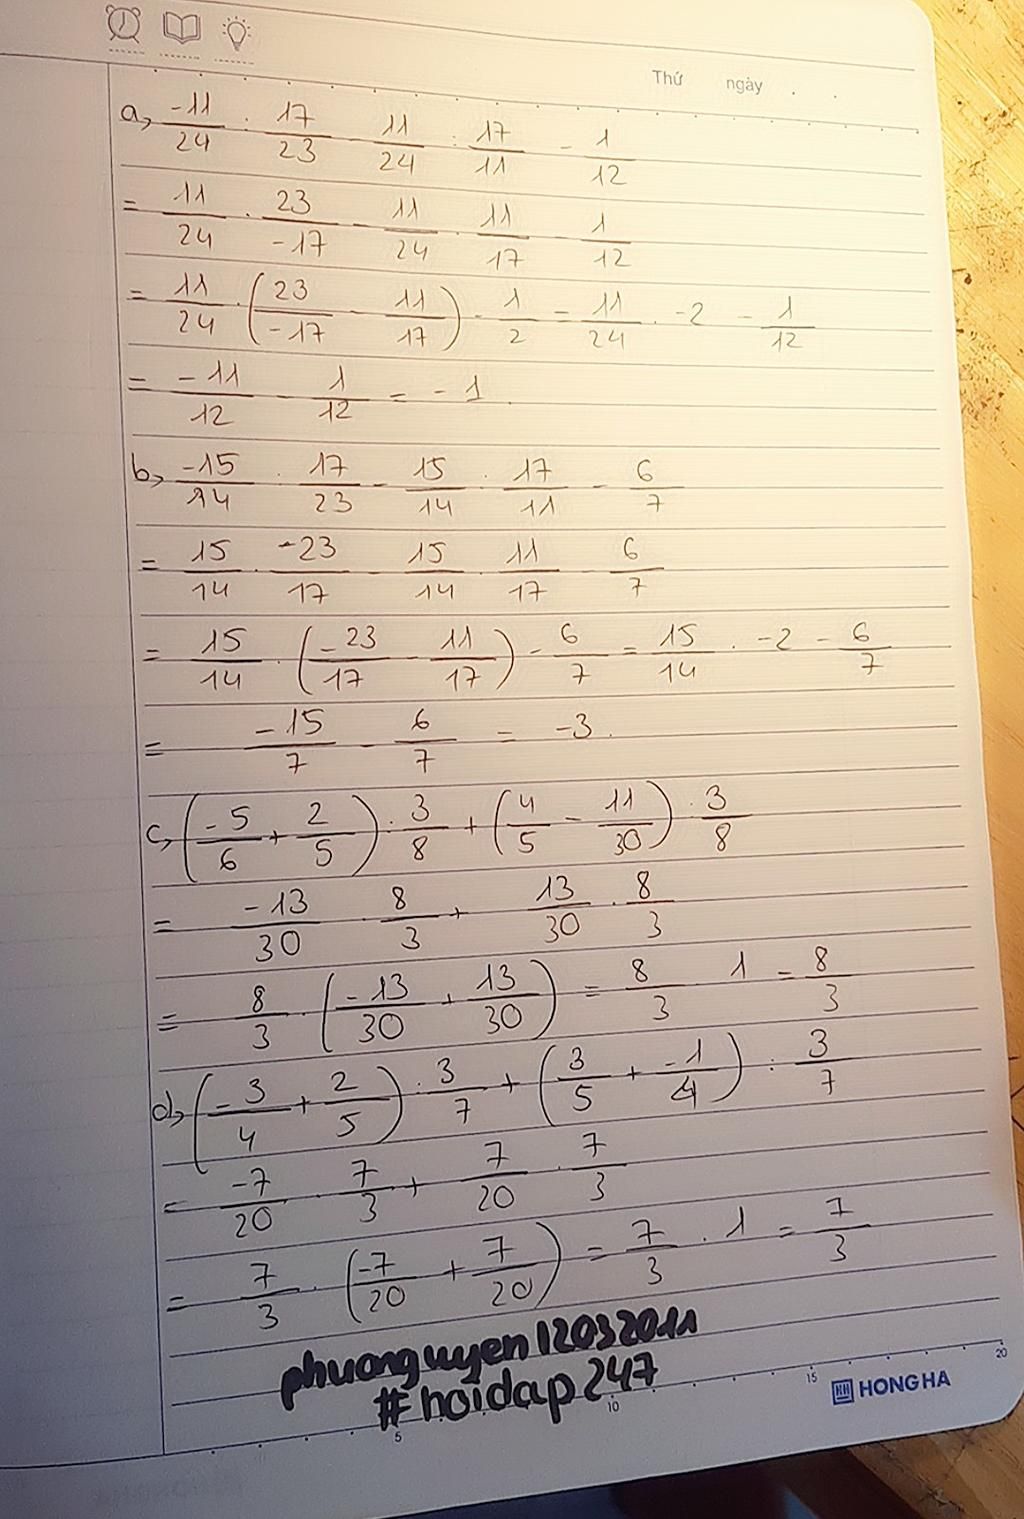 Thứ ngày . .
a, -11/24 : 17/23 - 11/24 : 17/11 - 1/12
= 11/24 . 23/-17 - 11/24 . 11/17 - 1/12
= 11/24 . (23/-17 - 11/17) - 1/2 = 11/24 . -2 - 1/12
= -11/12 - 1/12 = -1.
b, -15/14 : 17/23 - 15/14 : 17/11 - 6/7
= 15/14 . -23/17 - 15/14 . 11/17 - 6/7
= 15/14 . (-23/17 - 11/17) - 6/7 = 15/14 . -2 - 6/7
= -15/7 - 6/7 = -3.
c, (-5/6 + 2/5) : 3/8 + (4/5 - 11/30) : 3/8
= -13/30 . 8/3 + 13/30 . 8/3
= 8/3 . (-13/30 + 13/30) = 8/3 1 = 8/3
d, (-3/4 + 2/5) : 3/7 + (3/5 + -1/4) : 3/7
= -7/20 . 7/3 + 7/20 . 7/3
= 7/3 . (-7/20 + 7/20) = 7/3 . 1 = 7/3
phuongnuyen12032011
#hoidap247
5 10 15 20
HH HONG HA